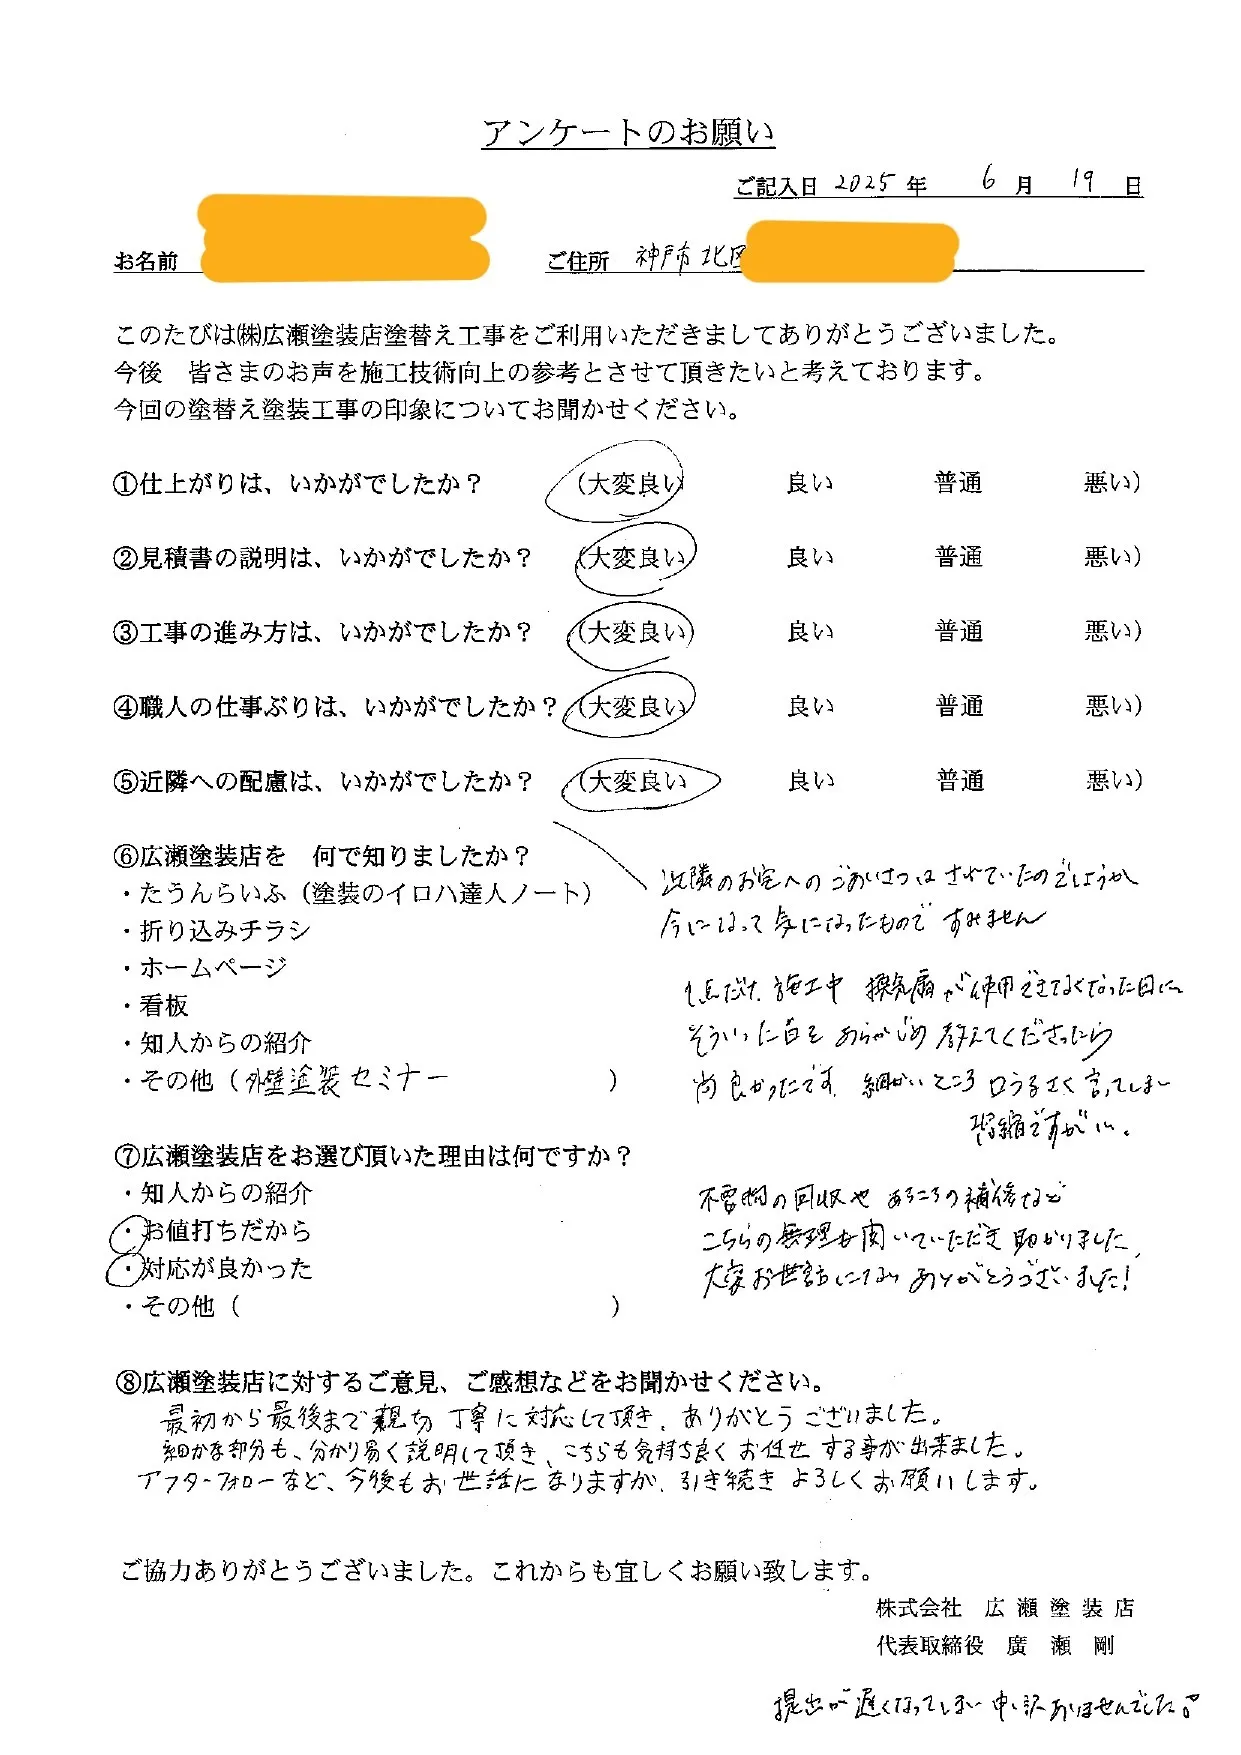 アンケートのお願い
ご記入日 2025 年 6 月 19 日
お名前 ご住所 神戸市北区
このたびは㈱広瀬塗装店塗替え工事をご利用いただきましてありがとうございました。
今後 皆さまのお声を施工技術向上の参考とさせて頂きたいと考えております。
今回の塗替え塗装工事の印象についてお聞かせください。
①仕上がりは、いかがでしたか？ (大変良い 良い 普通 悪い)
②見積書の説明は、いかがでしたか？ (大変良い 良い 普通 悪い)
③工事の進み方は、いかがでしたか？ (大変良い) 良い 普通 悪い)
④職人の仕事ぶりは、いかがでしたか？ (大変良い 良い 普通 悪い)
⑤近隣への配慮は、いかがでしたか？ (大変良い 良い 普通 悪い)
⑥広瀬塗装店を 何で知りましたか？
・たうんらいふ（塗装のイロハ達人ノート）
・折り込みチラシ
・ホームページ
・看板
・知人からの紹介
・その他（外壁塗装セミナー ）
近隣のお宅へのごあいさつはされていたのでしょうか
今になって気になったもので すみません
1点だけ、施工中 換気扇が使用できなくなった日に
そういった旨を あらかじめ 教えてくださったら
尚良かったです。細かいところ 口うるさく言ってしまい
恐縮ですが…。
⑦広瀬塗装店をお選び頂いた理由は何ですか？
・知人からの紹介
・お値打ちだから
・対応が良かった
・その他（ ）
不要物の回収や の補修など
こちらの無理を聞いていただき 助かりました。
大変お世話になり ありがとうございました！
⑧広瀬塗装店に対するご意見、ご感想などをお聞かせください。
最初から最後まで親切 丁寧に対応して頂き、ありがとうございました。
細かな部分も、分かり易く説明して頂き、こちらも気持ち良くお任せする事が出来ました。
アフターフォローなど、今後もお世話になりますが、引き続きよろしくお願いします。
ご協力ありがとうございました。これからも宜しくお願い致します。
株式会社 広瀬塗装店
代表取締役 廣瀬 剛
提出が遅くなってしまい申し訳ありませんでした。